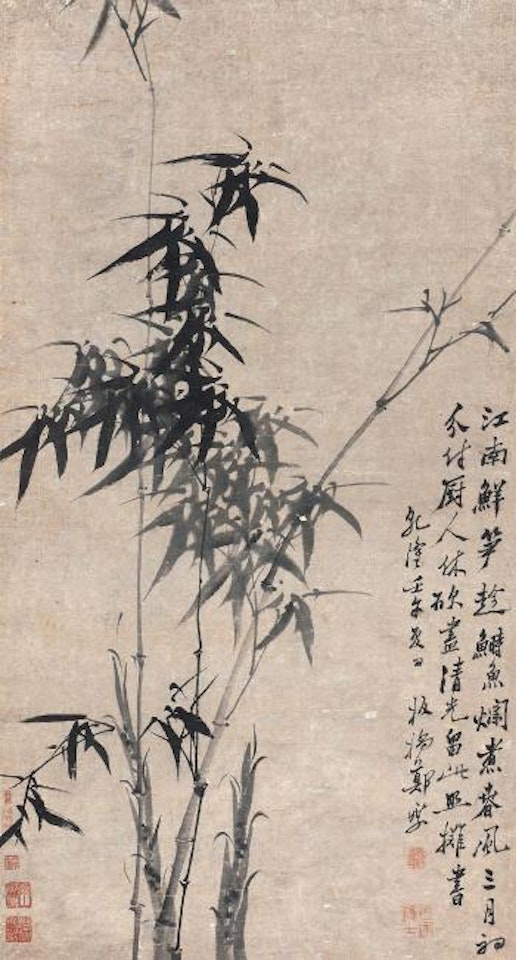 江南鮮笋趁鰣魚爛煮春風三月初
分付厨人休砍盡清光留此照攤書
乾隆壬午夏日 板橋鄭燮